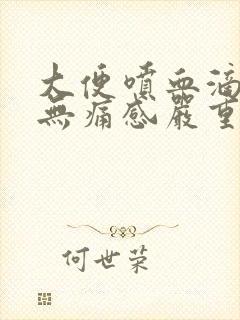 大便噴血滴
無痛感嚴重
何世荣